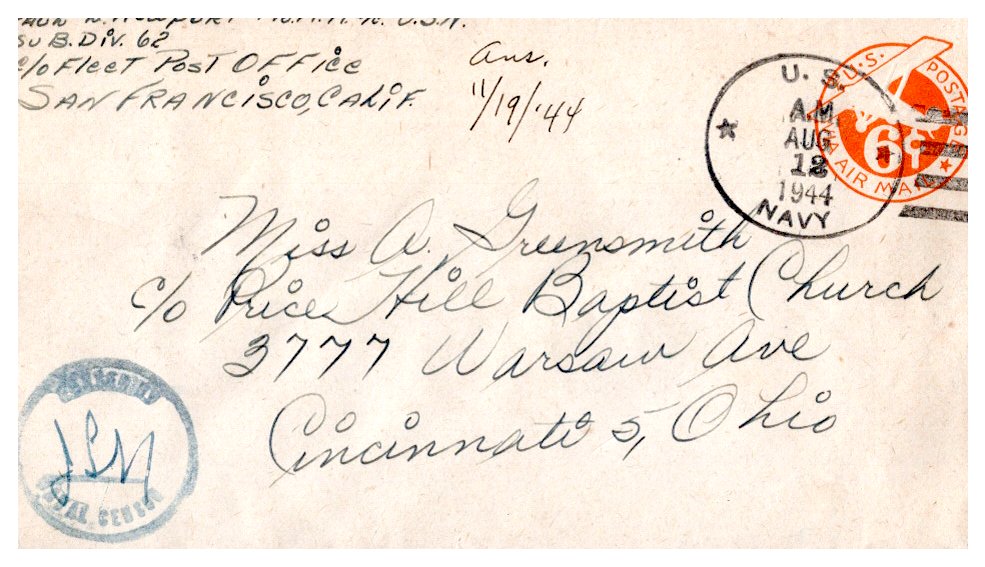 U.S.N.
SUB. DIV. 62
c/o FLEET POST OFFICE
SAN FRANCISCO, CALIF.
Ans.
11/19/'44
U. S.
A.M.
AUG
12
1944
NAVY
U.S. POSTAGE
6¢
VIA AIR MAIL
Miss A. Greensmith
c/o Price Hill Baptist Church
3777 Warsaw Ave
Cincinnati 5, Ohio
NAVAL CENSOR